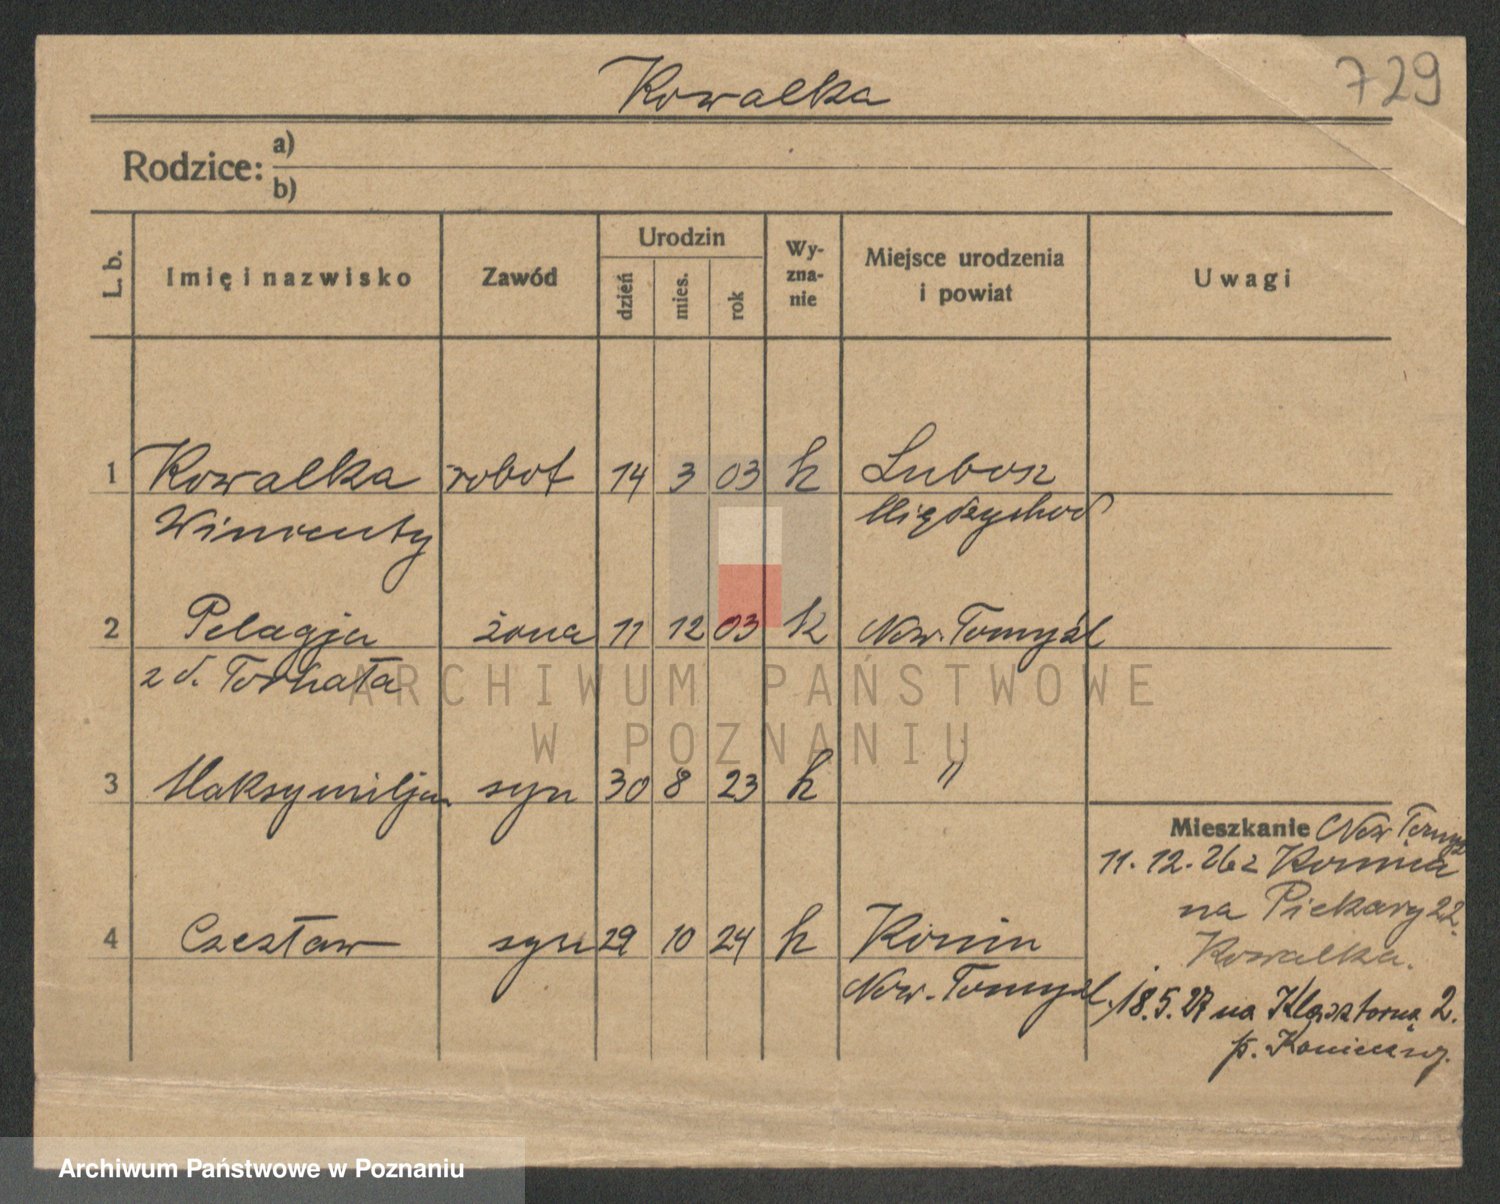 729
Kowalka
Rodzice:
a)
b)
L. b.
Imię i nazwisko
Zawód
Urodzin
dzień
mies.
rok
Wy-
zna-
nie
Miejsce urodzenia
i powiat
Uwagi
1 Kowalka robot 14 3 03 k Lubosz
Wincenty Międzychod
2 Pelagja żona 11 12 03 k Now. Tomyśl
z d. Torhata
3 Maksymiljan syn 30 8 23 k "
4 Czesław syn 29 10 24 k Konin
Now. Tomyśl
Mieszkanie Now Tomyśl
11. 12. 26 z Konina
na Piekary 22.
Kowalka.
18. 5. 27 na Klasztorną 2.
p. Konieczny.
ARCHIWUM PAŃSTWOWE
W POZNANIU
Archiwum Państwowe w Poznaniu